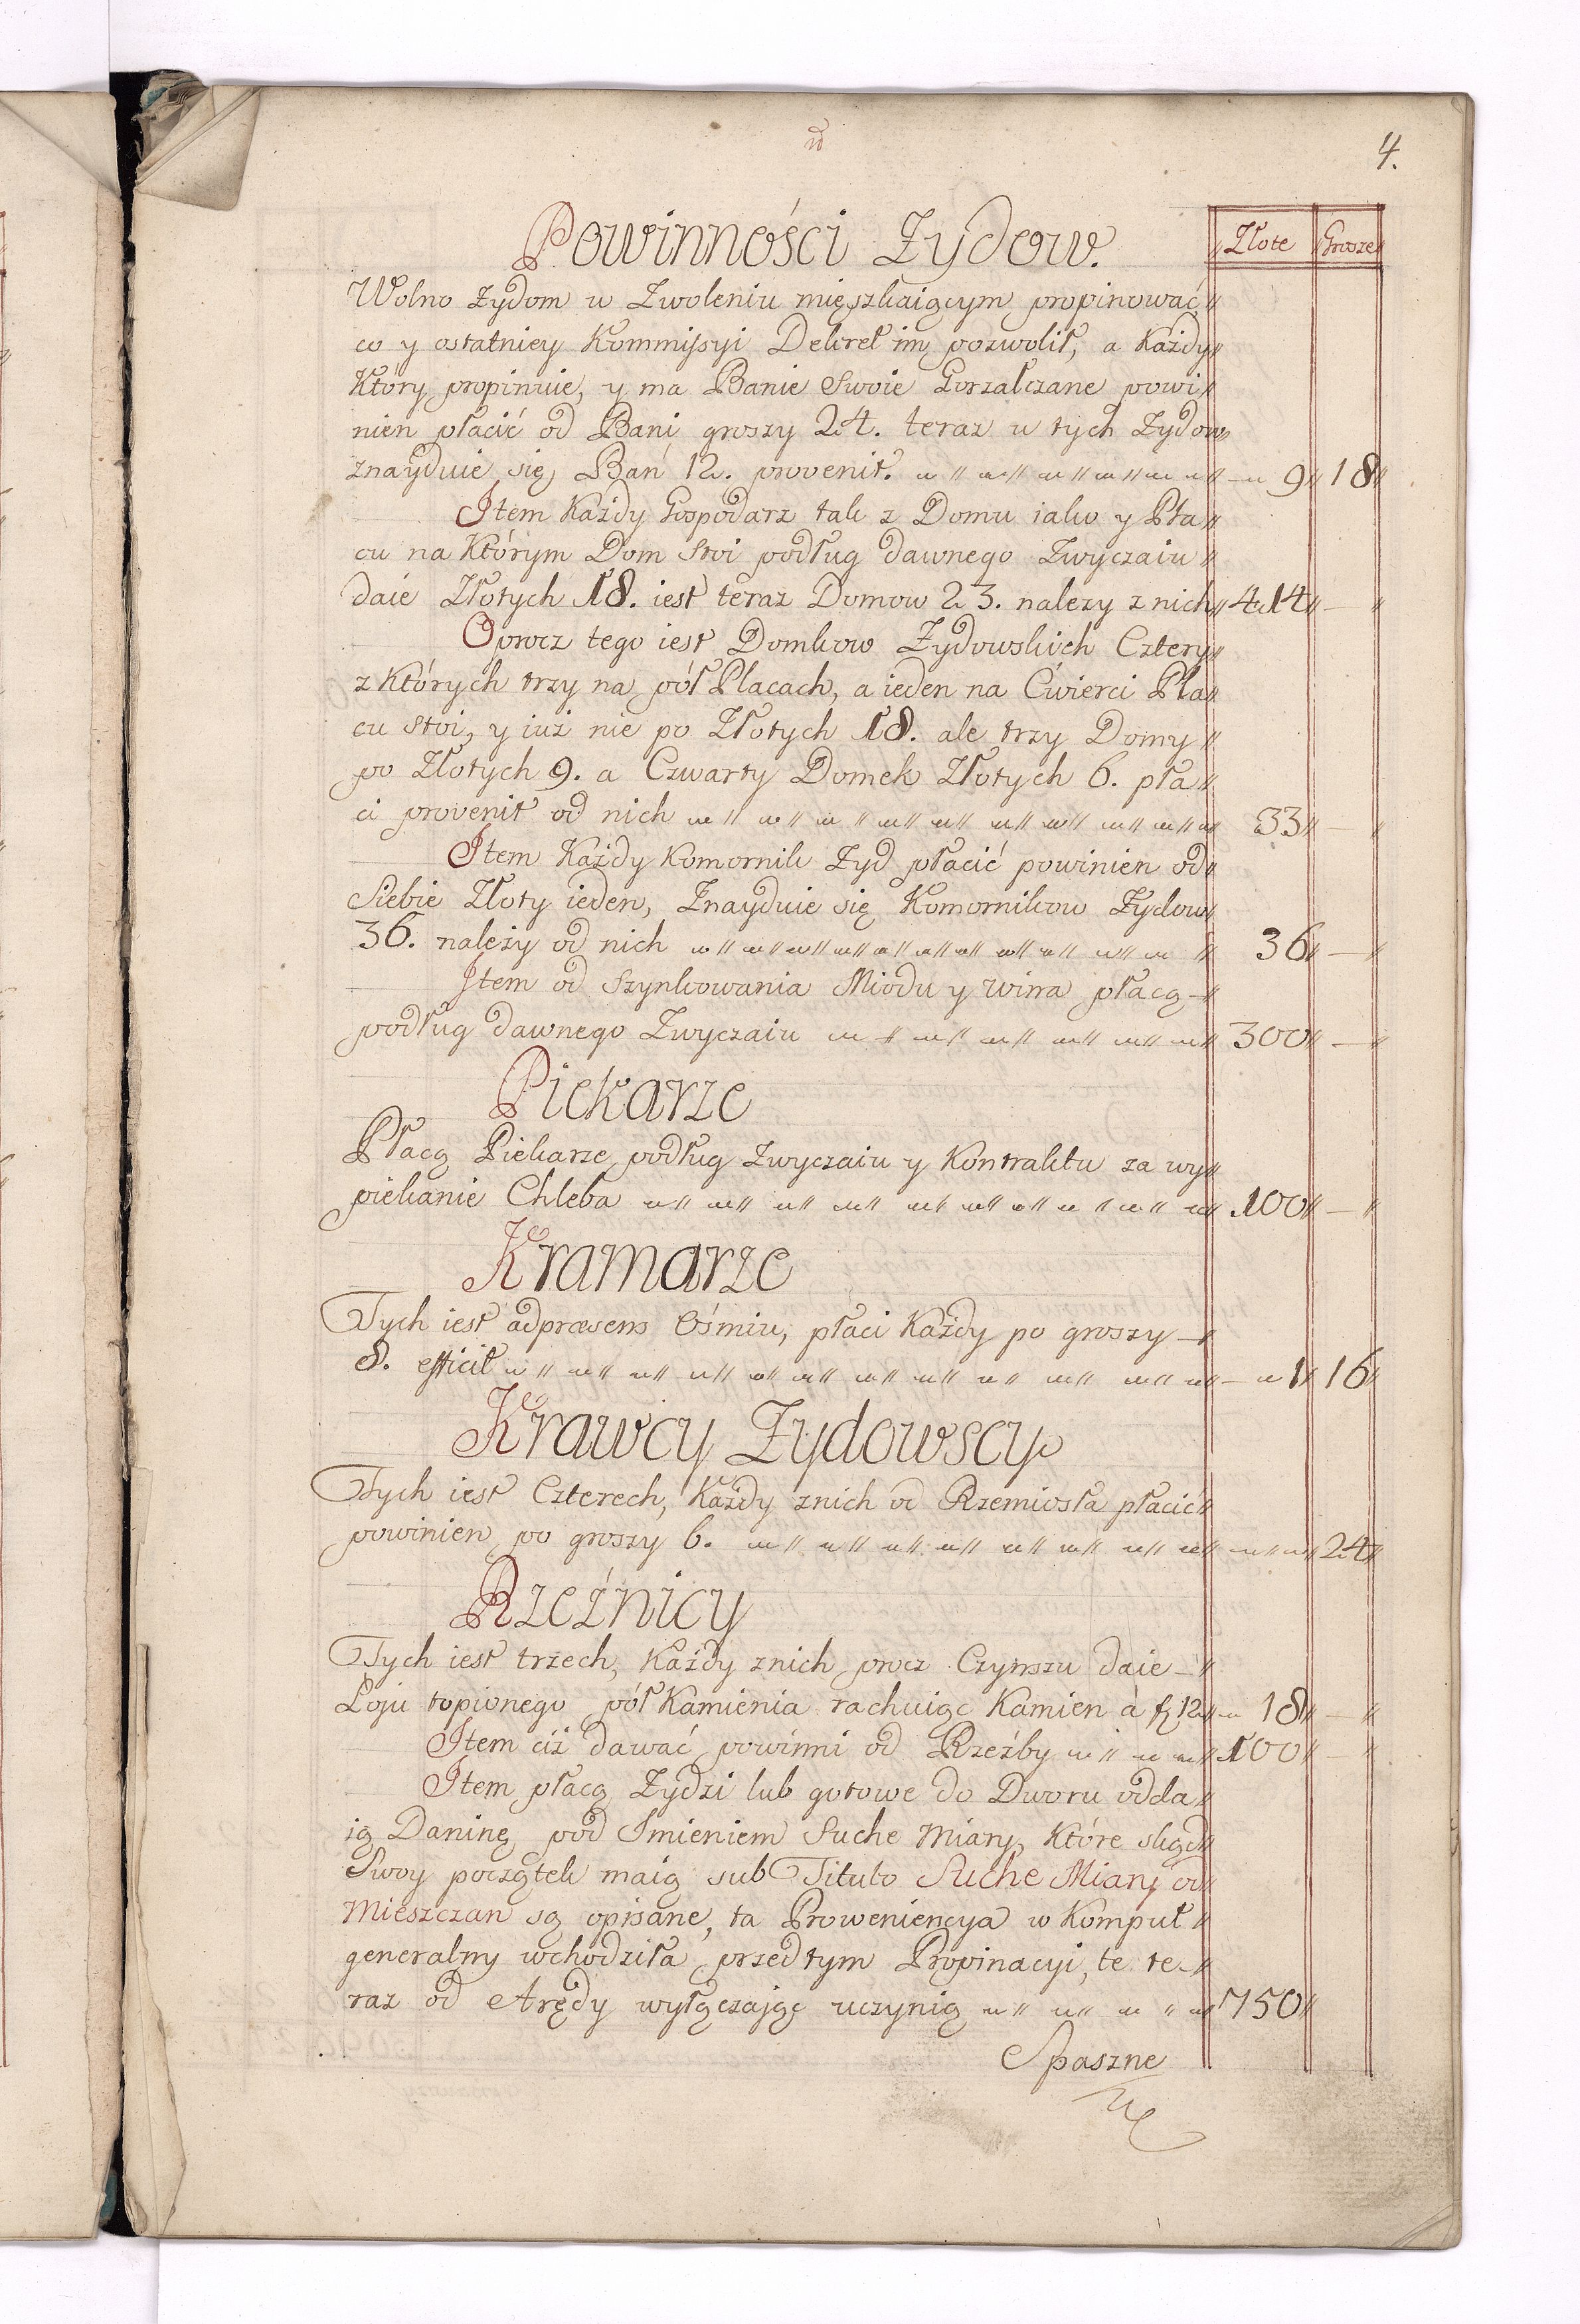 4.
Powinności Zydow.
Złote Grosze
Wolno Zydom w Zwoleniu mięszkaiącym propinować
co y ostatniey Kommissyi Dekret im pozwolił, a Każdy
Który propinuie, y ma Banie Swoie Gorzalczane powi
nien płacić od Bani groszy 24. teraz u tych Zydow
znayduie się Bań 12. provenit. 9 18
Item Każdy Gospodarz tak z Domu iako y Pla
cu na Którym Dom Stoi podług dawnego Zwyczaiu
daie Złotych 18. iest teraz Domow 23. nalezy z nich 414 —
Oprocz tego iest Domkow Zydowskich Cztery
z Których trzy na pół Placach, a ieden na Cwierci Pla
cu stoi, y iuż nie po Złotych 18. ale trzy Domy
po Złotych 9. a Czwarty Domek Złotych 6. pła
ci provenit od nich 33 —
Item Każdy Komornik Zyd płacić powinien od
Siebie Złoty ieden, Znayduie się Komornikow Zydow
36. należy od nich 36 —
Item od Szynkowania Miodu y wina płacą
podług dawnego Zwyczaiu 300 —
Piekarze
Płacą Piekarze podług zwyczaiu y Kontraktu za wy
piekanie Chleba 100 —
Kramarze
Tych iest adpræsens Ośmiu, płaci Każdy po groszy
8. efficit 1 16
Krawcy Zydowscy
Tych iest Czterech, Każdy znich od Rzemiosła płacić
powinien po groszy 6. 24
Rzeźnicy
Tych iest trzech, Każdy znich procz Czynszu daie
Łoju topionego pół Kamienia rachuiąc Kamien à fl 12 18 —
Item ciż dawać powinni od Rzeźby 100 —
Item płacą Zydzi lub gotowe do Dworu odda
ią Daninę pod Imieniem Suche Miary, Które skąd
Swoy początek maią sub Titulo Suche Miary od
Mieszczan są opisane, ta Proweniencya w Komput
generalny wchodziła przedtym Propinacyi, te te
raz od Arędy wyłączając uczynią 750
Spaszne